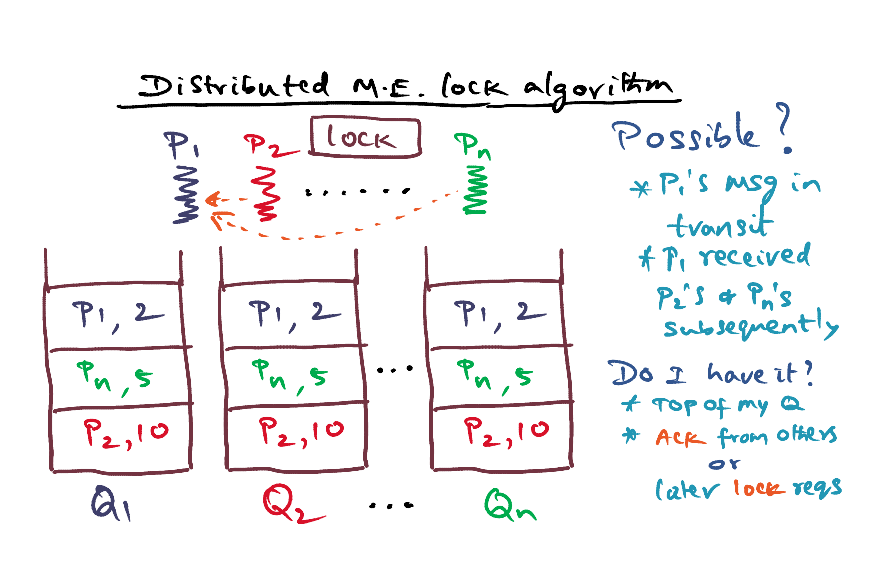 Distributed M.E. lock algorithm
P1 P2 lock Pn
......
P1, 2 P1, 2 P1, 2
Pn, 5 Pn, 5 ... Pn, 5
P2, 10 P2, 10 P2, 10
Q1 Q2 ... Qn
Possible?
* P1's msg in
transit
* P1 received
P2's & Pn's
subsequently
Do I have it?
* Top of my Q
* ACK from others
or
later lock reqs